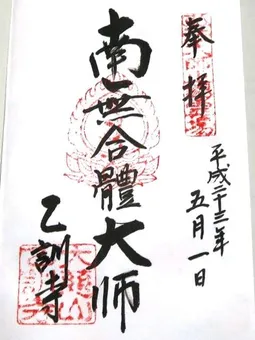 奉拝
平成二十三年
五月一日
南無合體大师
乙訓寺